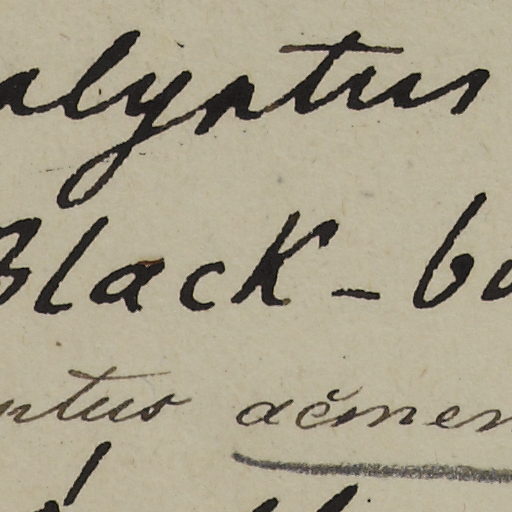 alyptus
Black-bu
ntus acmen